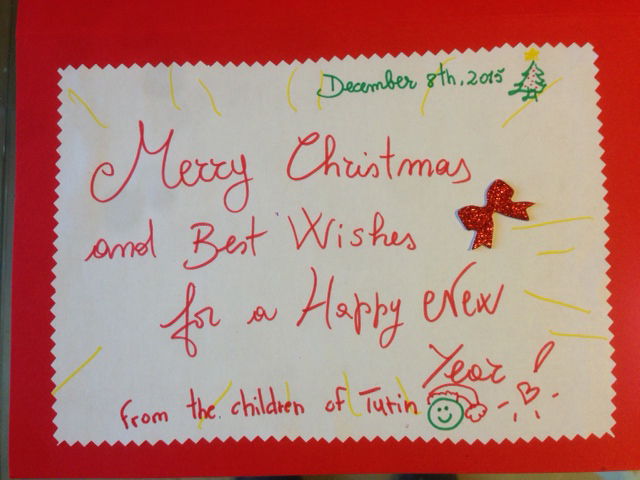 December 8th, 2015
Merry Christmas
and Best Wishes
for a Happy New
Year!
from the children of Turin